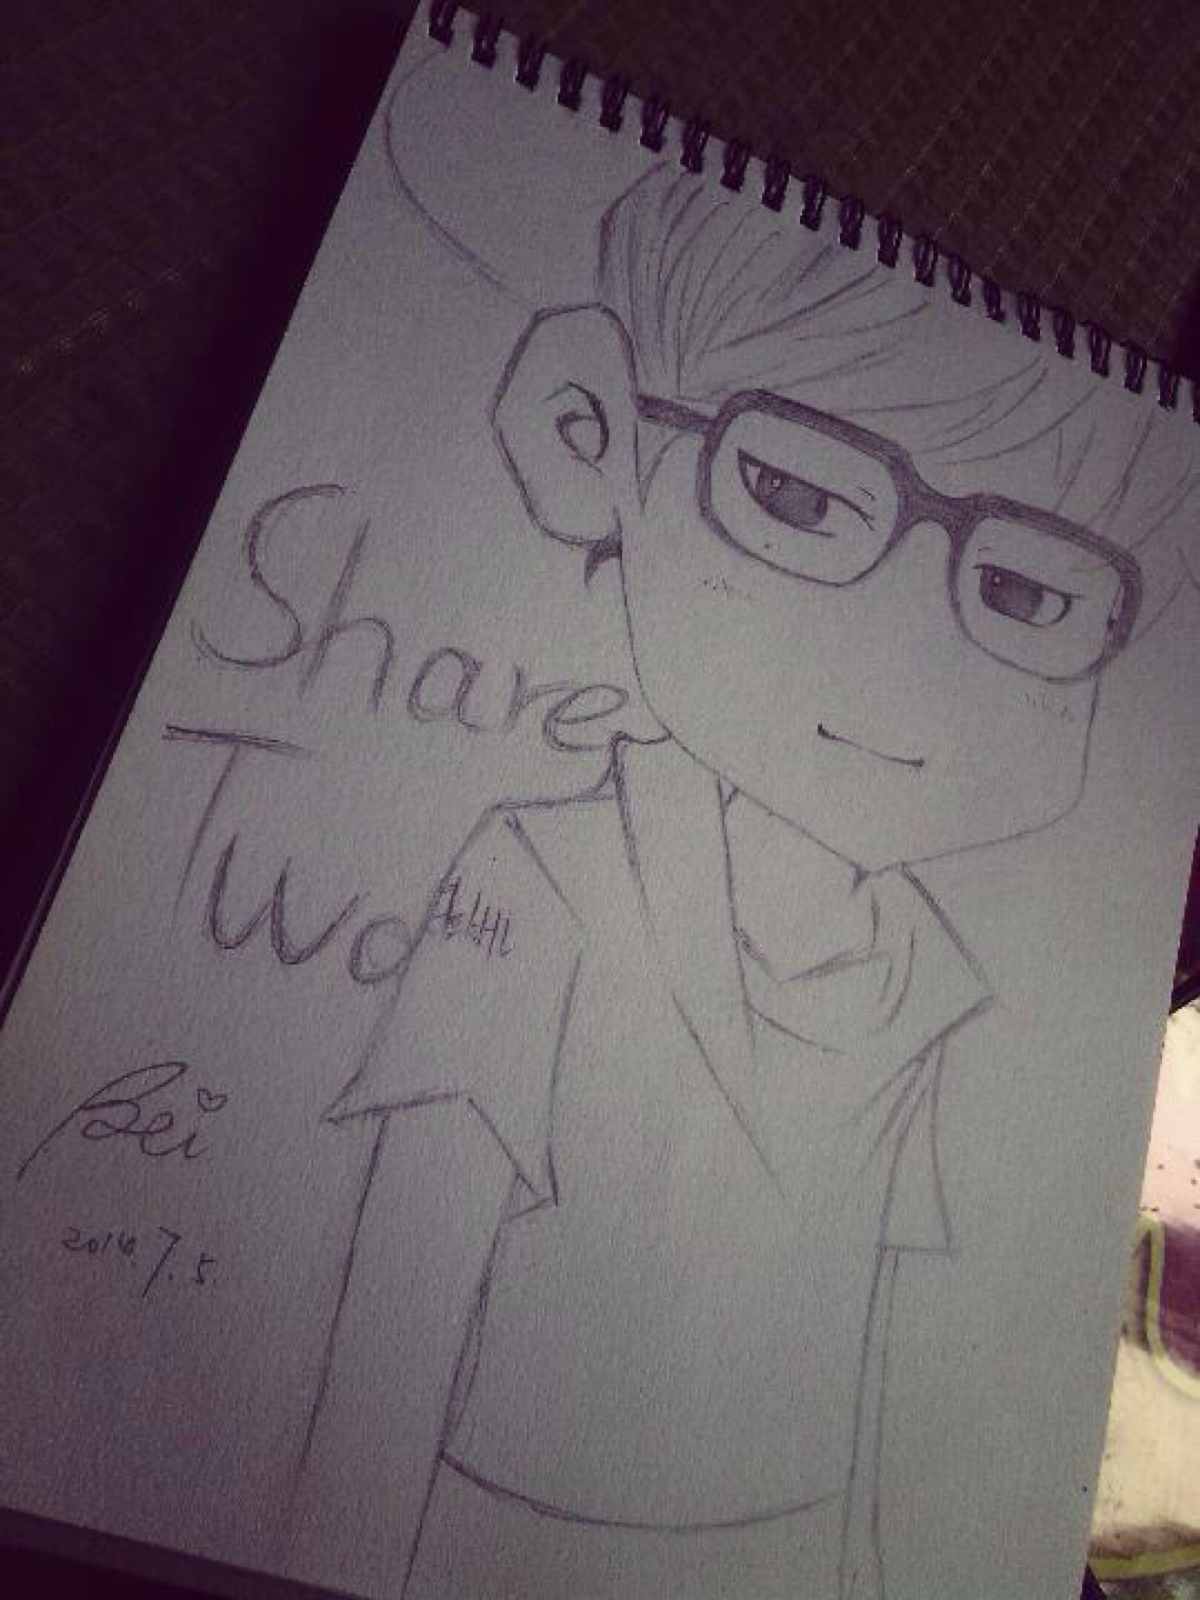 Share
Two
Bei
2014.7.5